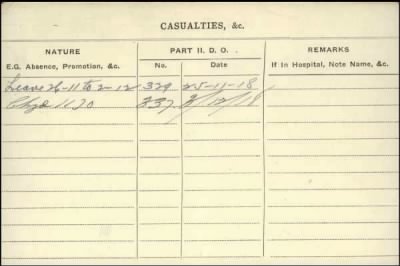 CASUALTIES, &c.
NATURE PART II. D. O. REMARKS
E.G. Absence, Promotion, &c. No. Date If in Hospital, Note Name, &c.
Leave 26-11 to 2-12 329 25-11-18
337 /12/18